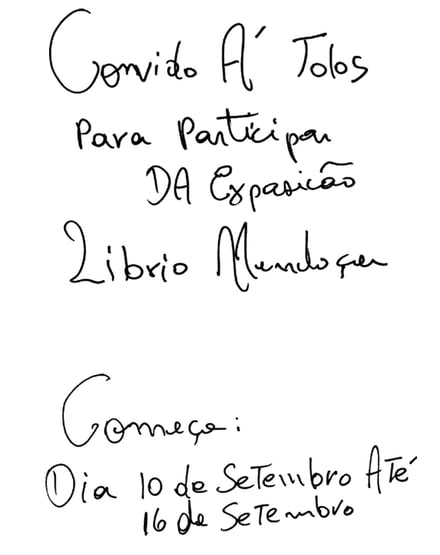 Convido A´ Tolos
Para Participar
DA Exposicão
Librio Mendoça
Começa:
Dia 10 de SeTembro ATé
16 de SeTembro